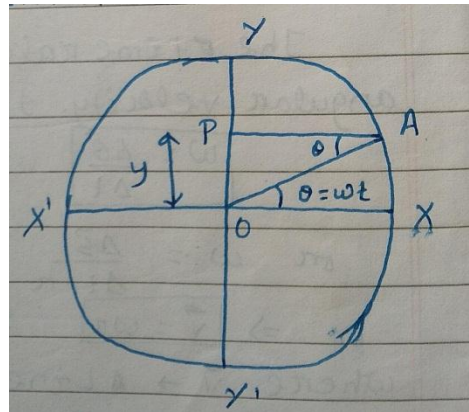 Y
P
A
θ
y
θ = ωt
X'
O
X
Y'